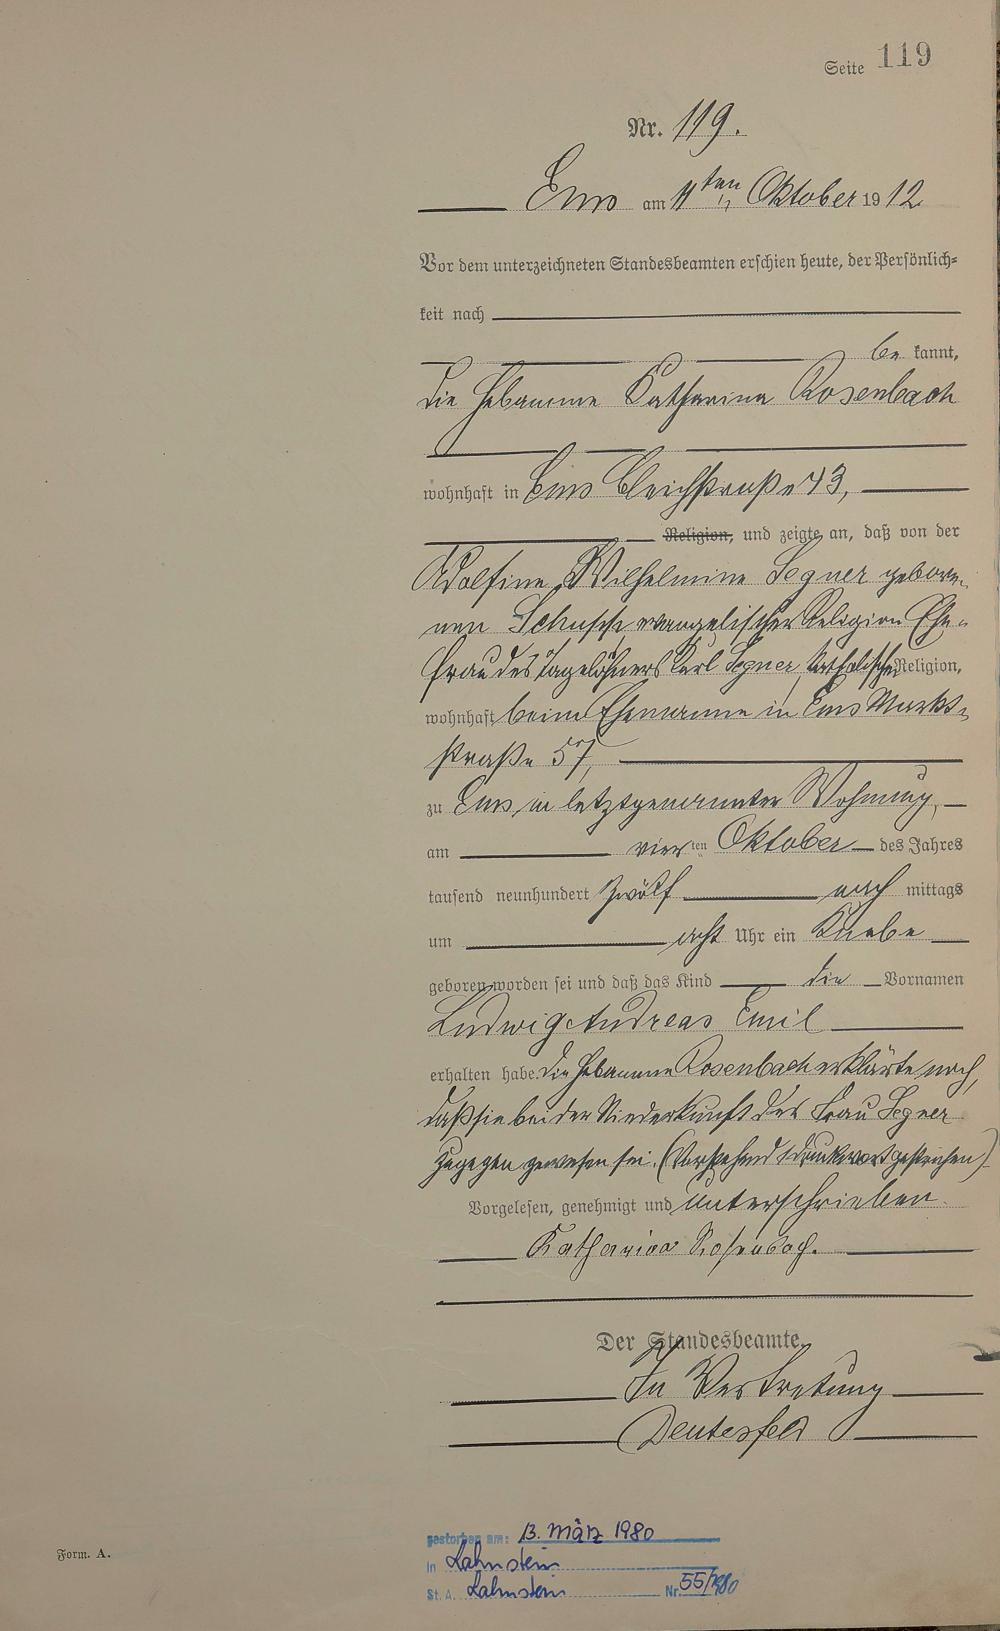 Seite 119
Nr. 119.
Ems am 11ten Oktober 1912
Vor dem unterzeichneten Standesbeamten erschien heute, der Persönlich-
keit nach
be kannt,
die Hebamme Katharina Rosenbach
wohnhaft in Ems Bleichstraße 43,
Religion, und zeigte an, daß von der
Adolfine Wilhelmine Segner gebore-
nen evangelischer Religion Ehe-
frau des Tagelöhners Karl Segner, katholischer Religion,
wohnhaft beim Ehemanne in Ems Markt-
straße 57,
zu Ems in letztgenannter Wohnung,
am vierten Oktober des Jahres
tausend neunhundert zwölf nach mittags
um acht Uhr ein Knabe
geboren worden sei und daß das Kind die Vornamen
Ludwig Andreas Emil
erhalten habe. Die Hebamme Rosenbach erklärte noch,
daß sie bei der Niederkunft der Frau Segner
zugegen gewesen sei. (Vorstehend 1 Druckwort gestrichen)
Vorgelesen, genehmigt und unterschrieben.
Katharina Rosenbach.
Der Standesbeamte.
In Vertretung
Form. A.
gestorben am: 13. März 1980
in Lahnstein
St. A. Lahnstein Nr. 55/1980